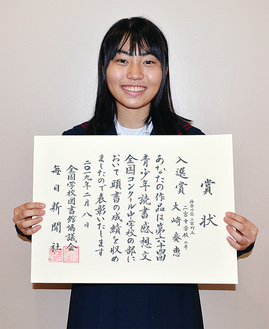 賞状
入選賞
二宮町立
二宮中学校
大崎
あなたの作品は第六十四回
青少年読書感想文
全国コンクール中学校の部に
おいて頭書の成績を収め
ましたので表彰いたします
二〇一九年二月八日
全国学校図書館協議会
毎日新聞社